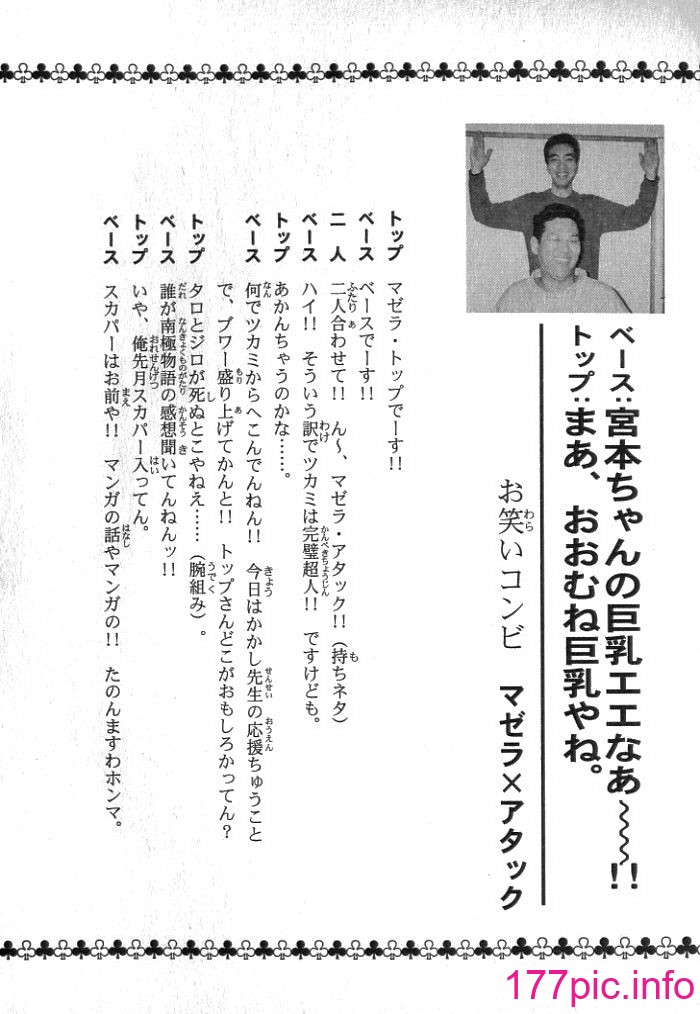 ベース:宮本ちゃんの巨乳エエなあ〜〜〜!!
トップ:まあ、おおむね巨乳やね。
お笑いコンビ マゼラ×アタック
トップ マゼラ・トップでーす!!
ベース ベースでーす!!
二人 二人合わせて!! ん〜、マゼラ・アタック!!(持ちネタ)
ベース ハイ!! そういう訳でツカミは完璧超人!! ですけども。
トップ あかんちゃうのかな……。
ベース 何でツカミからへこんでんねん!! 今日はかかし先生の応援ちゅうこと
で、ブワー盛り上げてかんと!! トップさんどこがおもしろかってん?
トップ タロとジロが死ぬとこやねえ……(腕組み)。
ベース 誰が南極物語の感想聞いてんねんッ!!
トップ いや、俺先月スカパー入ってん。
ベース スカパーはお前や!! マンガの話やマンガの!! たのんますわホンマ。
177pic.info